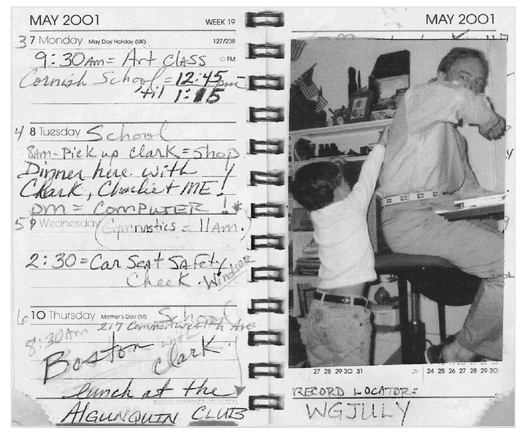 MAY 2001 WEEK 19
37 Monday May Day Holiday (UK) 127/238
9:30am = Art Class
Cornish School = 12:45
'til 1:15
4 8 Tuesday School
8am - Pick up Clark = Shop
Dinner here with
Clark, Charlie + ME!
pm = COMPUTER! *
5 9 Wednesday Gymnastics = 11am.
2:30 = Car Seat Safety
Check. Windsor
6 10 Thursday Mother's Day (M) School
217 Commonwealth Ave
8:30am with
Boston Clark
lunch at the
AlGUNQUIN CLUB
MAY 2001
27 28 29 30 31
24 25 26 27 28 29 30
RECORD LOCATOR =
WGJULY